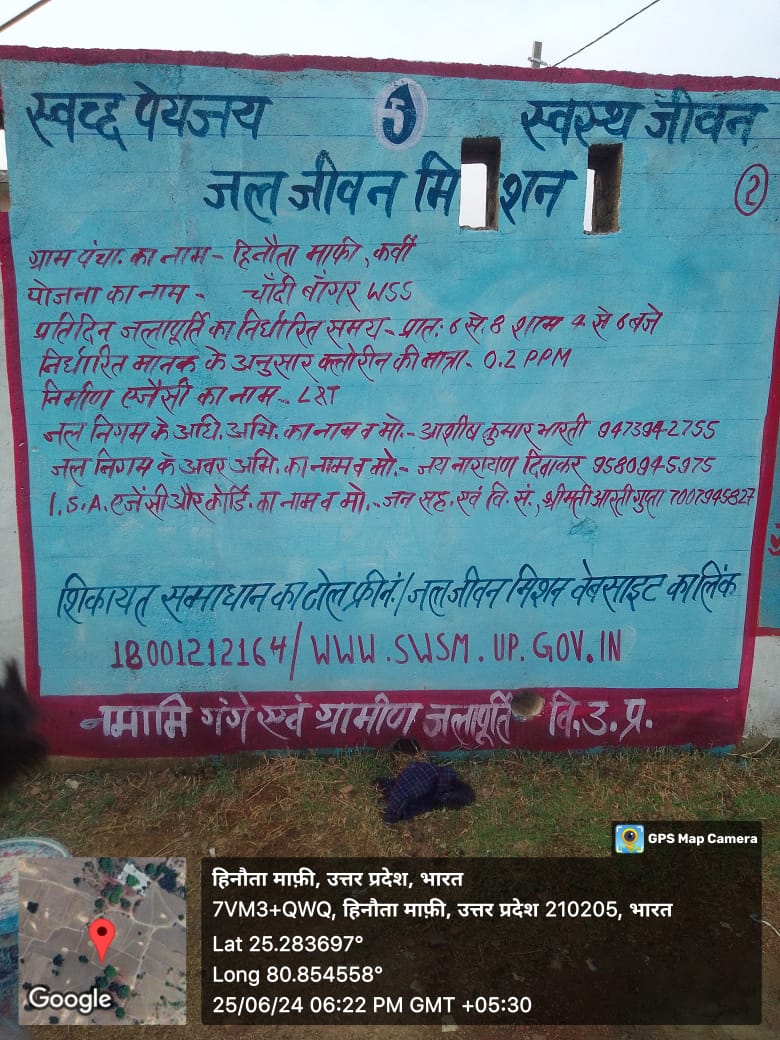 स्वच्छ पेयजय स्वस्थ जीवन
जल जीवन मिशन
2
ग्राम पंचा. का नाम - हिनौता माफी, कर्वी
योजना का नाम - चाँदी बाँगर WSS
प्रतिदिन जलापूर्ति का निर्धारित समय - प्रात: 6 से 8 शाम 4 से 6 बजे
निर्धारित मानक के अनुसार क्लोरीन की मात्रा - 0.2 PPM
निर्माण एजेंसी का नाम - L&T
जल निगम के अधि. अभि. का नाम व मो. - आशीष कुमार भारती 9473942755
जल निगम के अवर अभि. का नाम व मो. - जय नारायण दिवाकर 9580945975
I.S.A. एजेंसी और कोर्डि. का नाम व मो. - जन सह. एवं वि. सं., श्रीमती आरती गुप्ता 7007945827
शिकायत समाधान का टोल फ्री नं./जल जीवन मिशन वेबसाइट का लिंक
18001212164/WWW.SWSM.UP.GOV.IN
नमामि गंगे एवं ग्रामीण जलापूर्ति वि.उ.प्र.
GPS Map Camera
हिनौता माफ़ी, उत्तर प्रदेश, भारत
7VM3+QWQ, हिनौता माफ़ी, उत्तर प्रदेश 210205, भारत
Lat 25.283697°
Long 80.854558°
25/06/24 06:22 PM GMT +05:30
Google